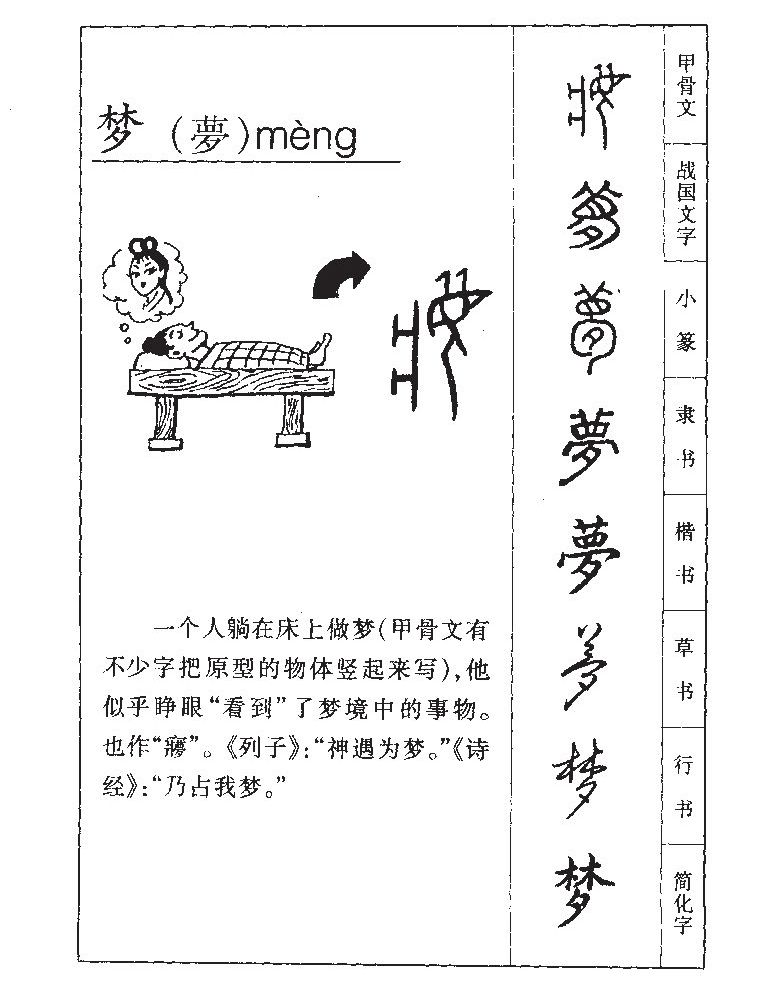 梦（夢）mèng
一个人躺在床上做梦（甲骨文有
不少字把原型的物体竖起来写），他
似乎睁眼“看到”了梦境中的事物。
也作“㝱”。《列子》：“神遇为梦。”《诗
经》：“乃占我梦。”
甲骨文
战国文字
小篆
夢
隶书
夢
楷书
夢
草书
梦
行书
梦
简化字